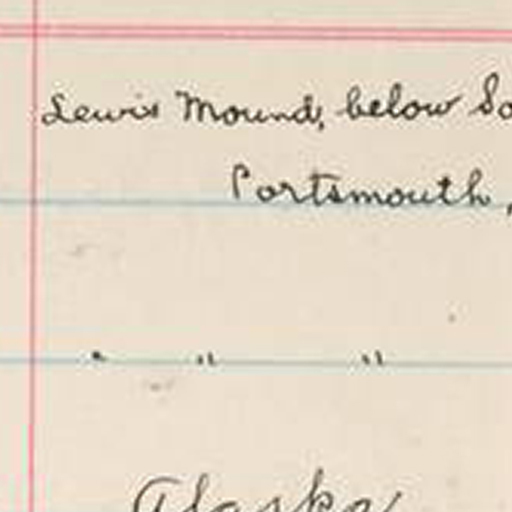 Lewis Mound, below So
Portsmouth,
" " "
Alaska